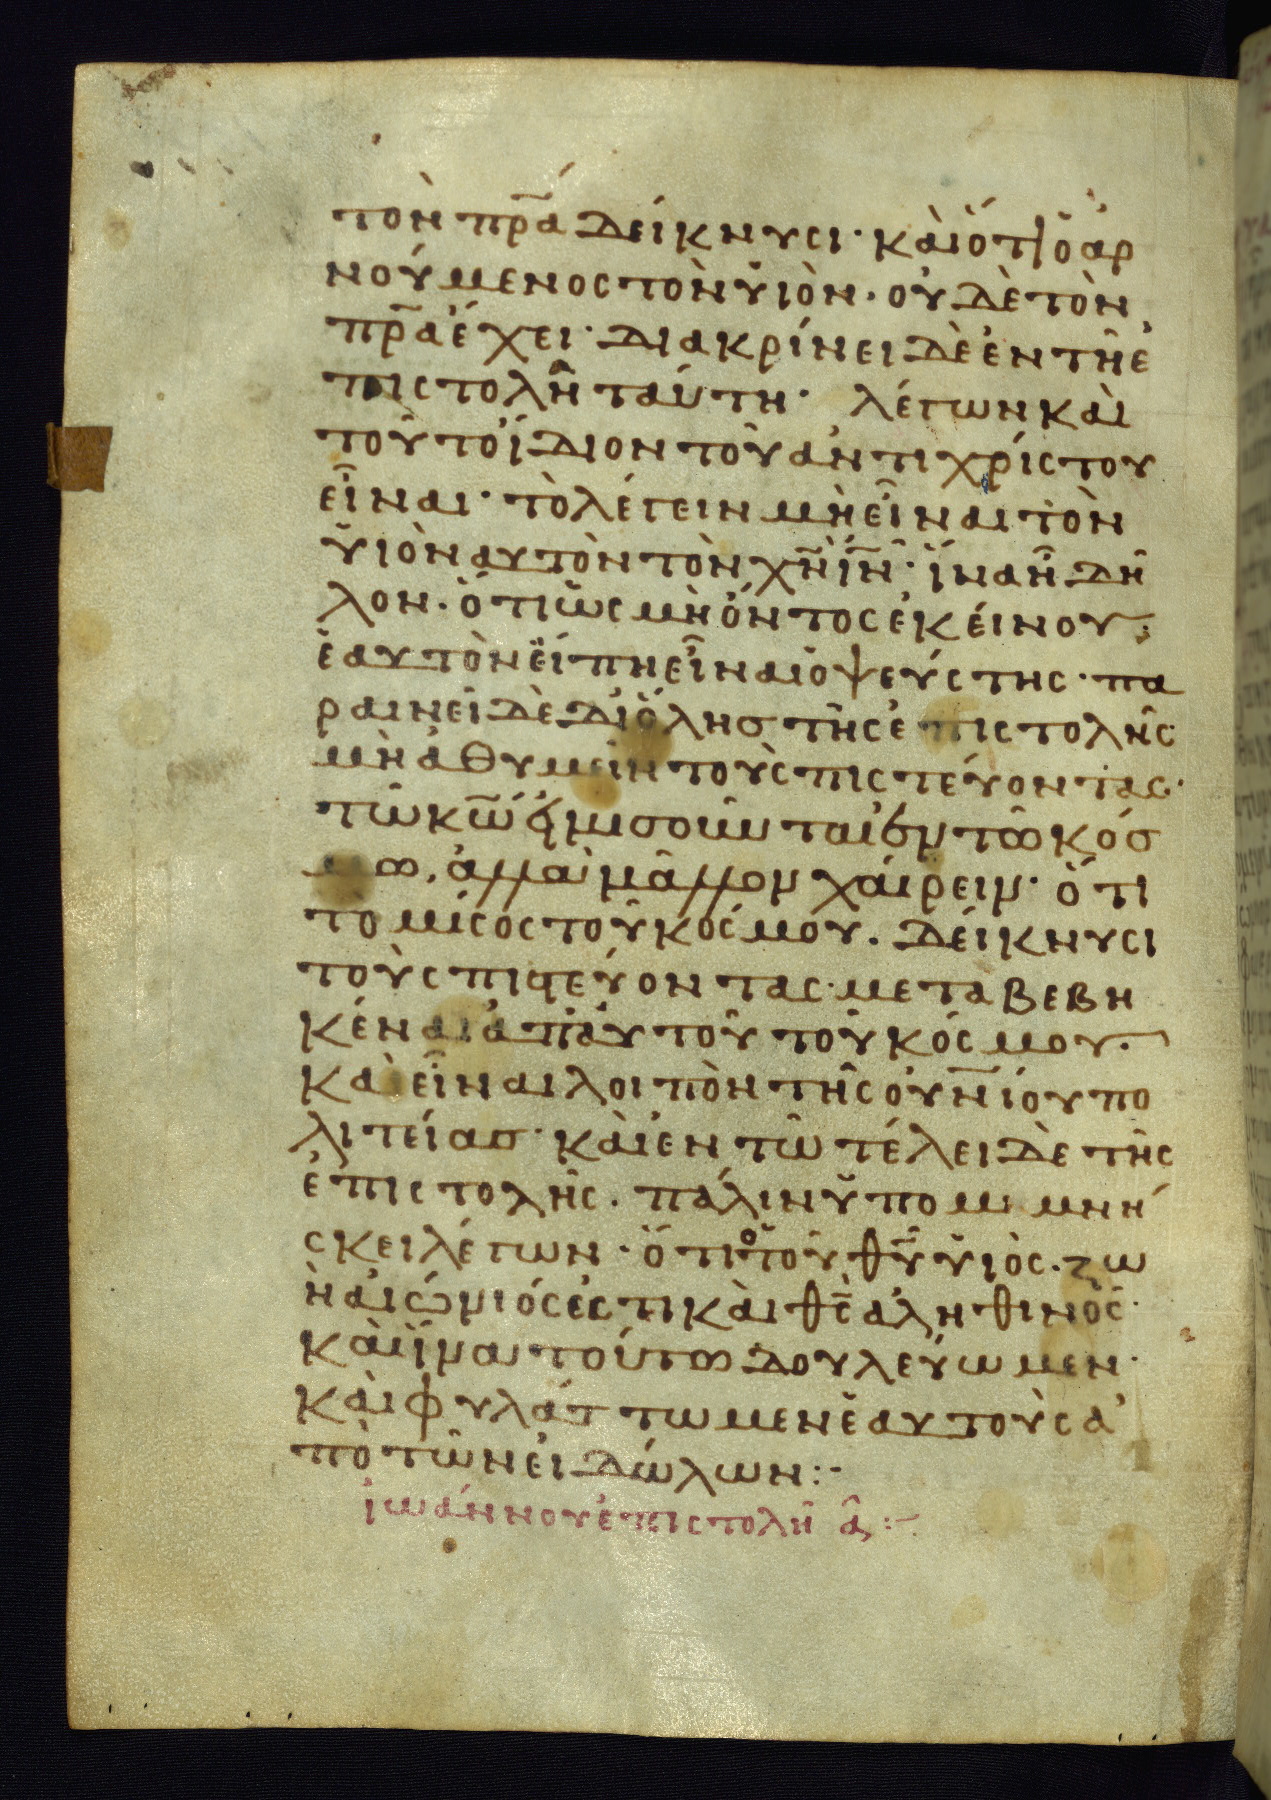 τὸν πρ̅α δείκνυσι· καὶ ὅτι ὁ ἀρ
νούμενος τὸν υἱὸν· οὐδὲ τὸν
πρ̅α ἔχει· διακρίνει δὲ ἐν τῆ ἐ
πιστολῆ ταύτη· λέγων καὶ
τοῦτο ἴδιον τοῦ ἀντιχρίστου
εἶναι· τὸ λέγειν μὴ εἶναι τὸν
υἱὸν αυτὸν τὸν χ̅ν ι̅ν· ἵνα ἦ δῆ
λον· ὅτι ὡς μὴ ὄντος ἐκείνου
ἑαυτὸν εἴπη εἶναι ὁ ψεύστης· πα
ραινεῖ δὲ δι ὅλης τῆς ἐπιστολῆς
μὴ ἀθυμεῖν τοὺς πιστεύοντας·
τῶ κω̅
μω, ἀλλὰ μᾶλλον χαίρειν· ὅτι
τὸ μῖσος τοῦ κόσμου· δείκνυσι
τοὺς πιστεύοντας· μεταβεβη
κέναι ἀπ αὐτοῦ τοῦ κόσμου·
καὶ εἶναι λοιπὸν τῆς οὐν̅ίου πο
λιτείας· καὶ ἐν τῶ τέλει δὲ τῆς
ἐπιστολῆς· πάλιν ὑπομιμνή
σκει λέγων· ὅτι ὁ τοῦ θ̅υ υἱὸς· ζω
ὴ αἰώνιός ἐστι καὶ θ̅ς ἀληθινός·
καὶ ἵνα τούτω δουλεύωμεν·
καὶ φυλάττωμεν ἑαυτοὺς ἀ
πὸ τῶν εἰδώλων:-
ἰωάννου ἐπιστολὴ α:-